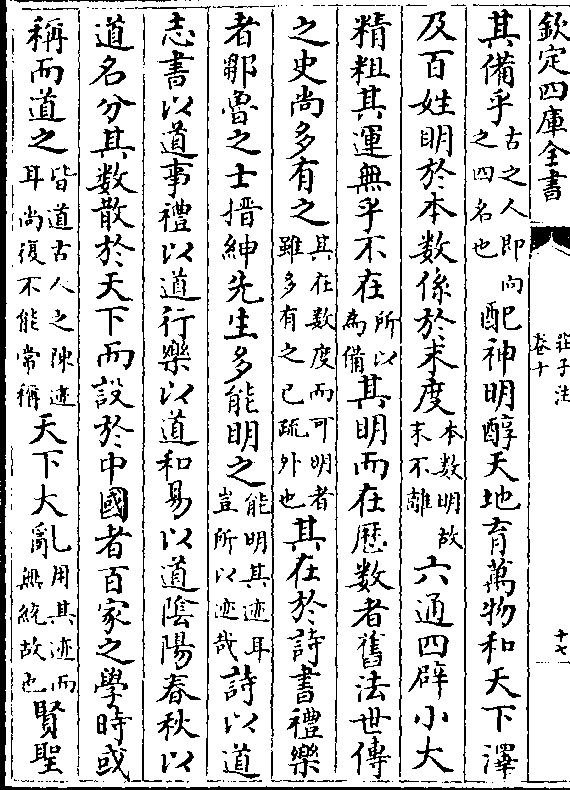 欽定四庫全書
莊子注
卷十
十七
其備乎古之人即向之四名也配神明醇天地育萬物和天下澤
及百姓明於本數係於末度本數明故末不離六通四辟小大
精粗其運無乎不在所以為備其明而在厯數者舊法世傳
之史尚多有之其在數度而可明者雖多有之已疏外也其在於詩書禮樂
者鄒魯之士搢紳先生多能明之能明其迹耳豈所以迹哉詩以道
志書以道事禮以道行樂以道和易以道陰陽春秋以
道名分其數散於天下而設於中國者百家之學時或
稱而道之皆道古人之陳迹耳尚復不能常稱天下大亂用其迹而無統故也賢聖